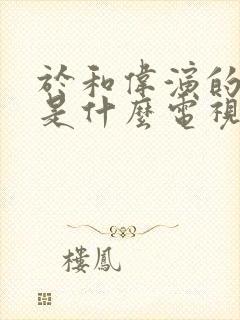 於和偉演的
是什麼電視
樓鳳